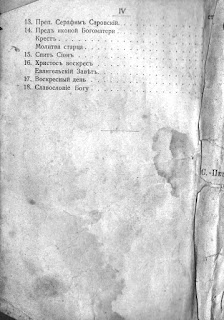 IV
13. Преп. Серафимъ Саровскій.
14. Предъ иконой Богоматери
Крестъ
Молитва старца
15. Спитъ Сіонъ
16. Христосъ воскресъ
Евангельскій Завѣтъ
17. Воскресный день
18. Славословіе Богу